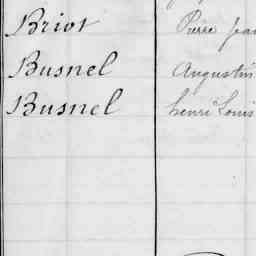 Briot Pierre Jea
Busnel Augustin
Busnel henri Louis